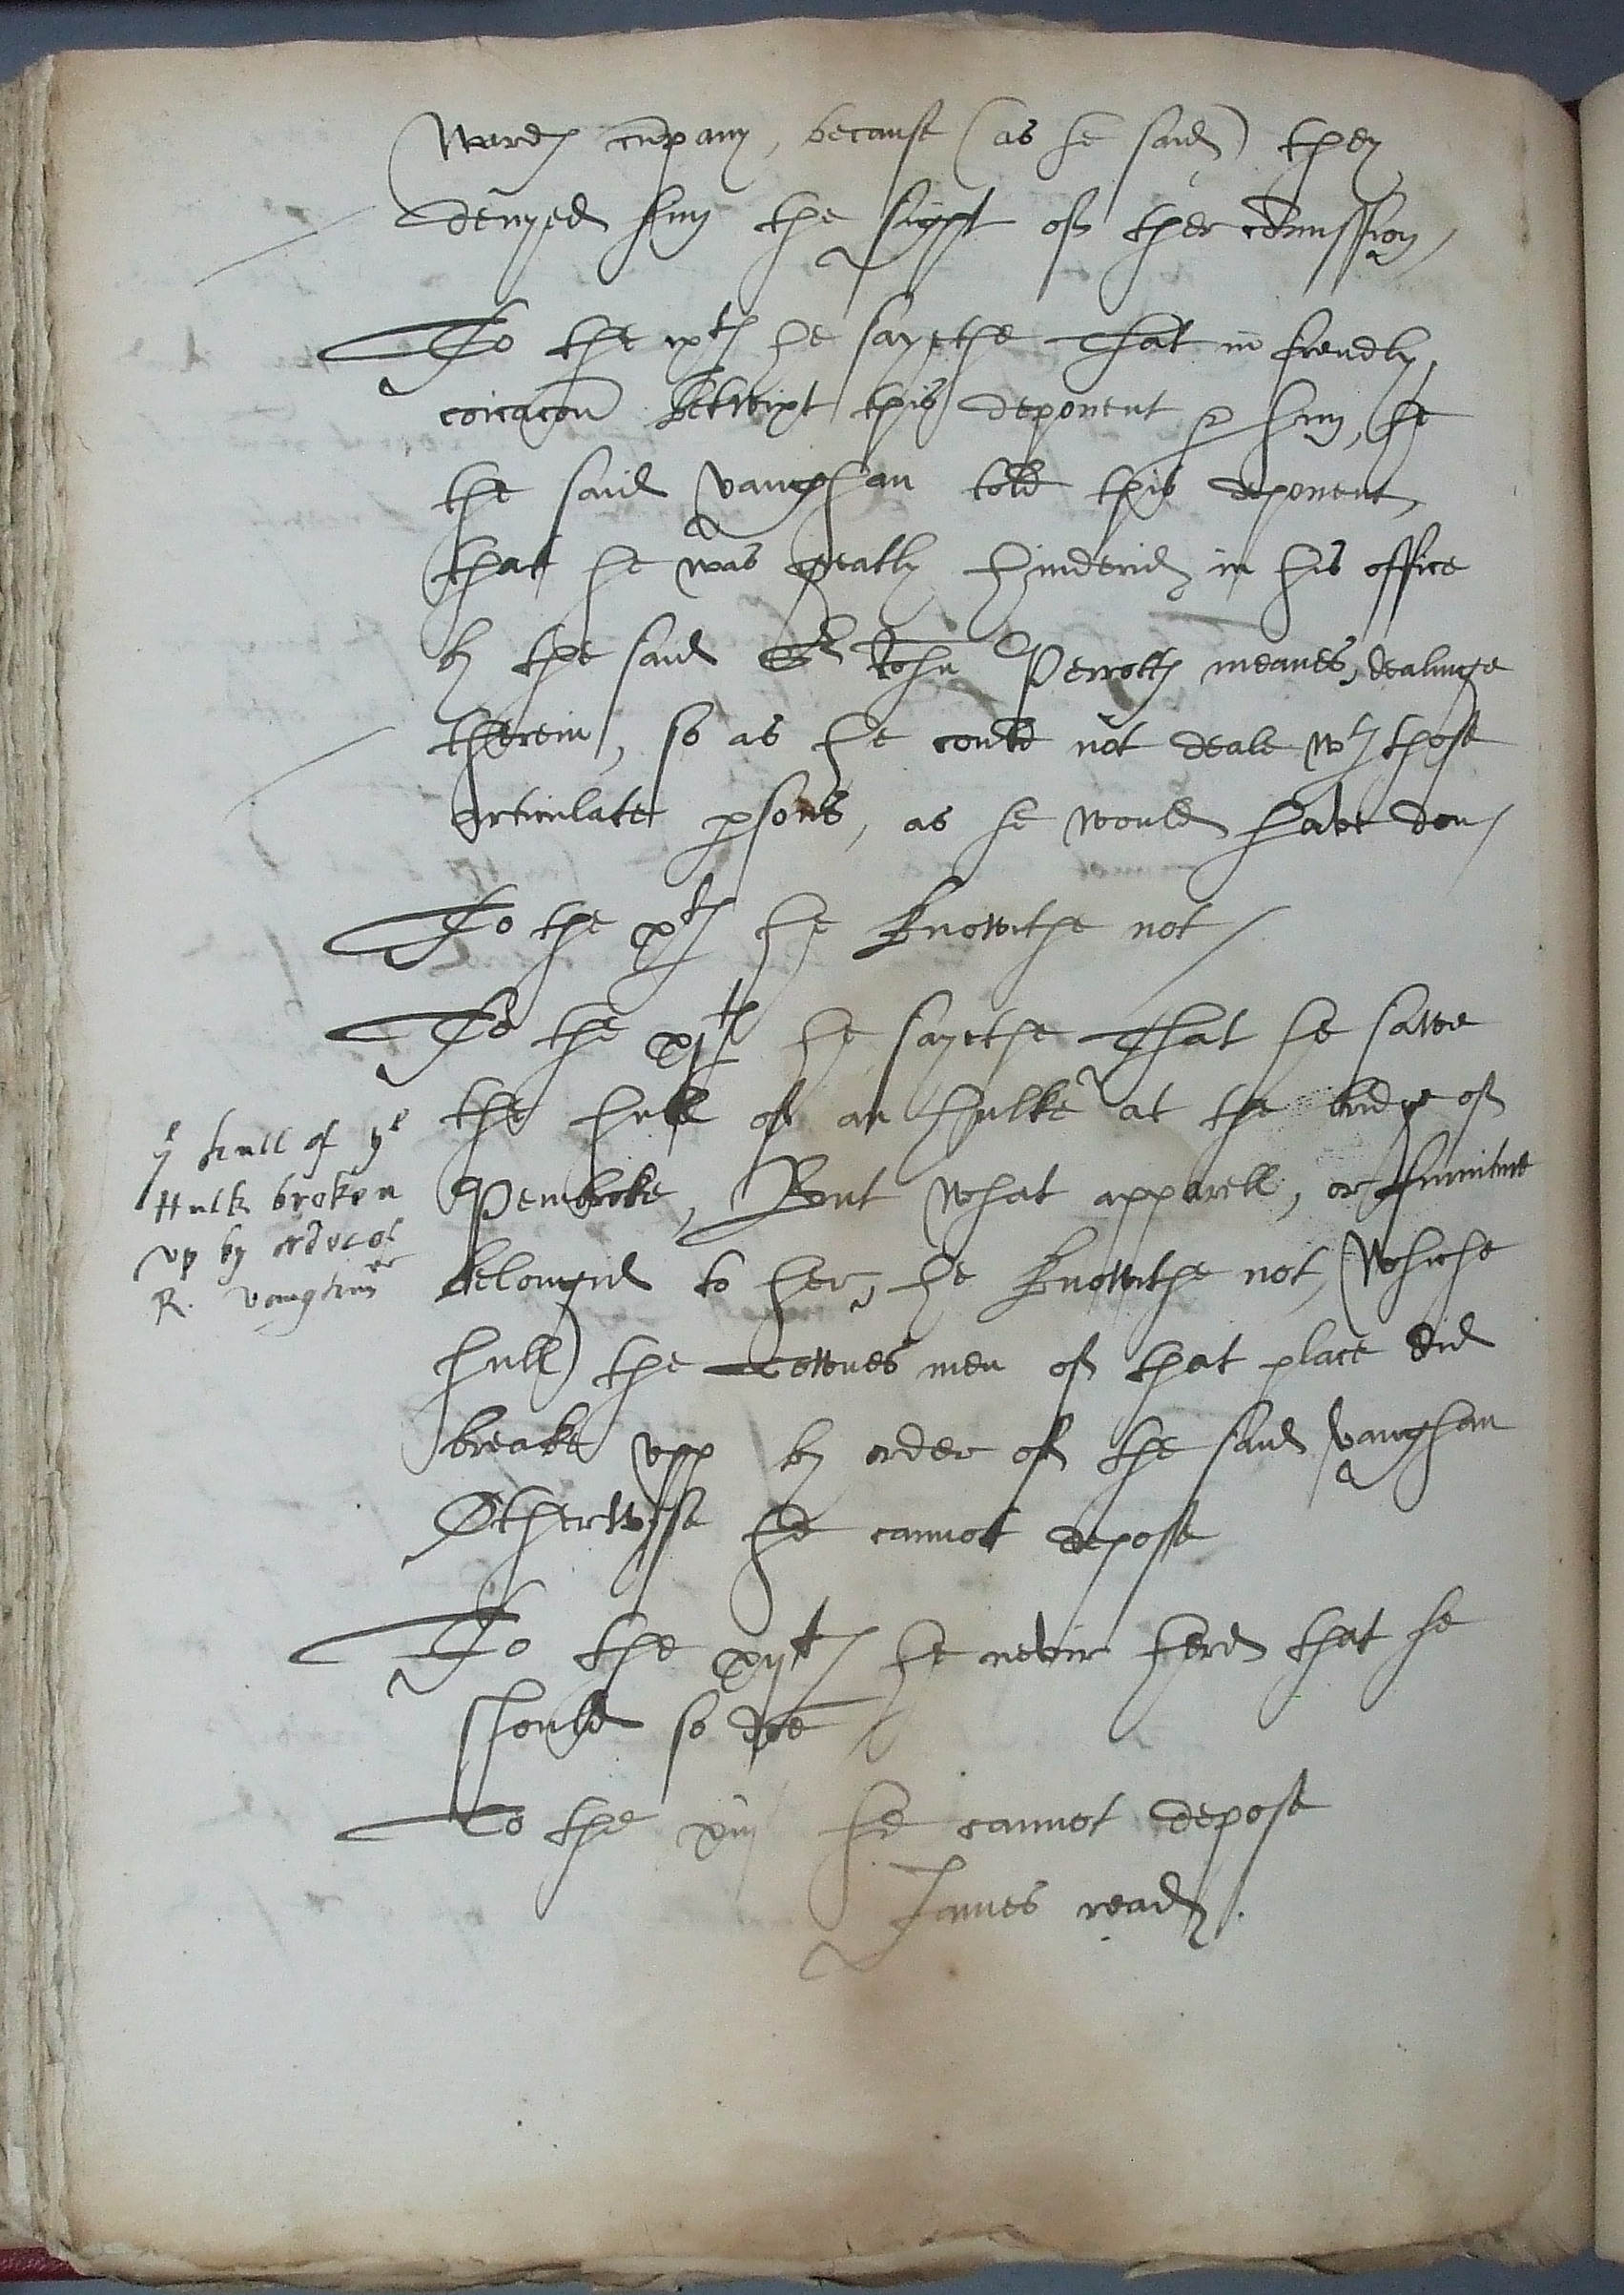 Wardes cumpany, because (as he said) they
denyed hym the sight of ther comission /
To the ixth he sayethe That in frendly
coicacon betwixt this deponent & hym, he
the said Vaughan told this deponent,
that he was greatly hinderid in his office
by the said Sr John Perrottes meanes, dealinge
therein, so as he could not deale wth those
articulate psons, as he would have don /
To the xth he knowithe not /
To the xjth he sayethe That he sawe
the hull of an hulke at the bridge of
Pembroke, But what apparell, or furniture
belongid to her, he knowithe not, (whiche
hull) the Townes men of that place did
breake upp by order of the said Vaughan
Otherwyse he cannot depose
ye hull of ye
Hulk broken
vp by order of
R. Vaughan
To the xijth he nevir herd that he
should so doe /
To the xiij he cannot depose
James read.